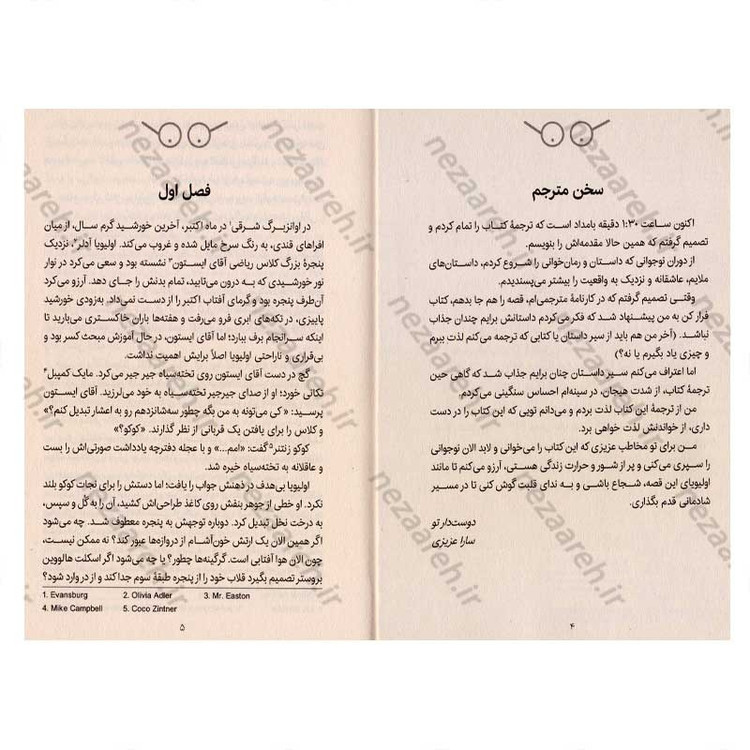 سخن مترجم
اکنون ساعت ۱:۳۰ دقیقه بامداد است که ترجمهٔ کتاب را تمام کردم و
تصمیم گرفتم که همین حالا مقدمه‌اش را بنویسم.
از دوران نوجوانی که داستان و رمان‌خوانی را شروع کردم، داستان‌های
ملایم، عاشقانه و نزدیک به واقعیت را بیشتر می‌پسندیدم.
وقتی تصمیم گرفتم که در کارنامهٔ مترجمی‌ام، قصه را هم جا بدهم، کتاب
فرار کن به من پیشنهاد شد که فکر می‌کردم داستانش برایم چندان جذاب
نباشد. (آخر من هم باید از سیر داستان یا کتابی که ترجمه می‌کنم لذت ببرم
و چیزی یاد بگیرم یا نه؟)
اما اعتراف می‌کنم سیر داستان چنان برایم جذاب شد که گاهی حین
ترجمهٔ کتاب، از شدت هیجان، در سینه‌ام احساس سنگینی می‌کردم.
من از ترجمهٔ این کتاب لذت بردم و می‌دانم تویی که این کتاب را در دست
داری، از خواندنش لذت خواهی برد.
من برای تو مخاطب عزیزی که این کتاب را می‌خوانی و لابد الان نوجوانی
را سپری می‌کنی و پر از شور و حرارت زندگی هستی، آرزو می‌کنم تا مانند
اولیویای این قصه، شجاع باشی و به ندای قلبت گوش کنی تا در مسیر
شادمانی قدم بگذاری.
دوست‌دار تو
سارا عزیزی
۴
فصل اول
در اوانزبرگ شرقی۱ در ماه اکتبر، آخرین خورشید گرم سال، از میان
افراهای قندی، به رنگ سرخ مایل شده و غروب می‌کند. اولیویا آدلر۲، نزدیک
پنجرهٔ بزرگ کلاس ریاضی آقای ایستون۳ نشسته بود و سعی می‌کرد در نوار
نور خورشیدی که به درون می‌تابید، تمام بدنش را جای دهد. آرزو می‌کرد
آن‌طرف پنجره بود و گرمای آفتاب اکتبر را از دست نمی‌داد. به‌زودی خورشید
پاییزی، در تکه‌های ابری فرو می‌رفت و هفته‌ها باران خاکستری می‌بارید تا
اینکه سرانجام برف ببارد؛ اما آقای ایستون، در حال آموزش مبحث کسر بود و
بی‌قراری و ناراحتی اولیویا اصلاً برایش اهمیت نداشت.
گچ در دست آقای ایستون روی تخته‌سیاه جیر جیر می‌کرد. مایک کمپبل۴
تکانی خورد؛ او از صدای جیرجیر تخته‌سیاه به خود می‌لرزید. آقای ایستون
پرسید: « کی می‌تونه به من بگه چطور سه‌شانزدهم رو به اعشار تبدیل کنم؟»
و کلاس را برای یافتن یک قربانی از نظر گذارند. «کوکو؟»
کوکو زنتنر۵ گفت: «امم...» و با عجله دفترچه یادداشت صورتی‌اش را بست
و عاقلانه به تخته‌سیاه خیره شد.
اولیویا بی‌هدف در ذهنش جواب را یافت؛ اما دستش را برای نجات کوکو بلند
نکرد. او خطی از جوهر بنفش روی کاغذ طراحی‌اش کشید، آن را به گل و سپس،
به درخت نخل تبدیل کرد. دوباره توجهش به پنجره معطوف شد. چه می‌شود
اگر همین الان یک ارتش خون‌آشام از دروازه‌ها عبور کند؟ نه ممکن نیست،
چون الان هوا آفتابی است. گرگینه‌ها چطور؟ یا چه می‌شود اگر اسکلت هالووین
بروستر تصمیم بگیرد قلاب خود را از پنجره طبقهٔ سوم جدا کند و از در وارد شود؟
1. Evansburg 2. Olivia Adler 3. Mr. Easton
4. Mike Campbell 5. Coco Zintner
۵
nezaareh.ir